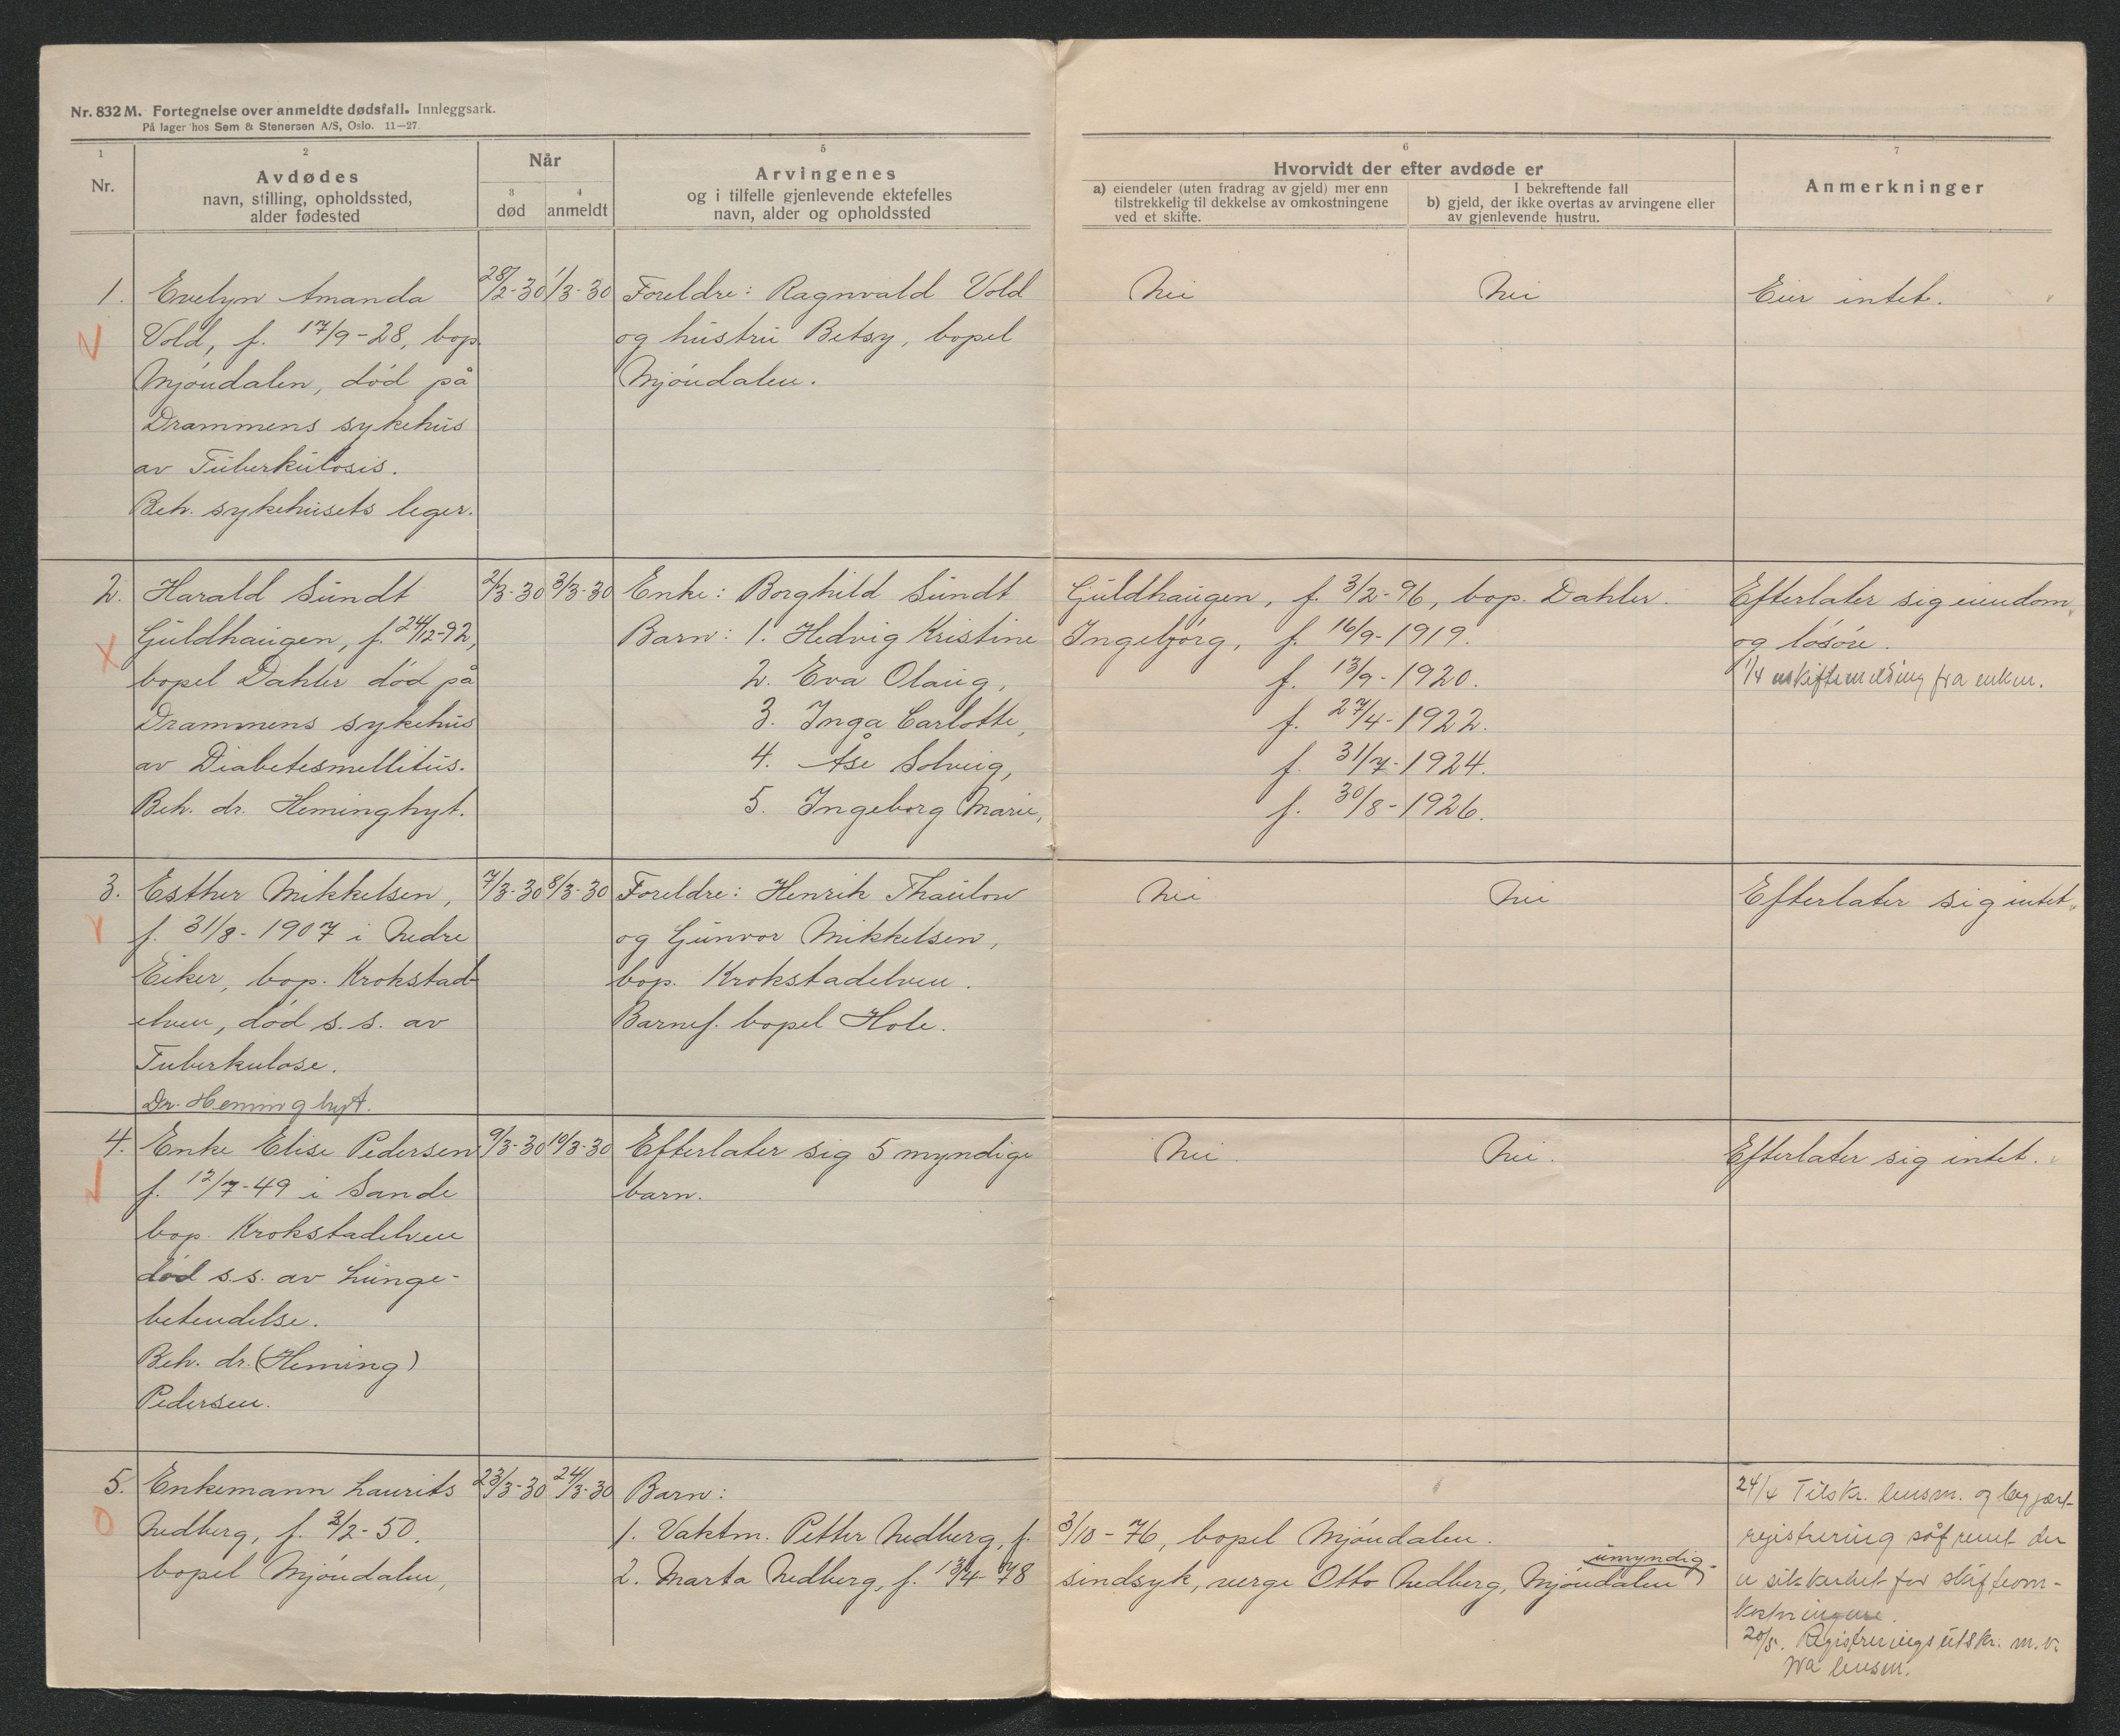 Nr. 832 M. Fortegnelse over anmeldte dødsfall. Innleggsark.
På lager hos Sem & Stenersen A/S, Oslo. 11—27.
1
Nr.
2
Avdødes
navn, stilling, opholdssted,
alder fødested
Når
3
død
4
anmeldt
5
Arvingenes
og i tilfelle gjenlevende ektefelles
navn, alder og opholdssted
6
Hvorvidt der efter avdøde er
a) eiendeler (uten fradrag av gjeld) mer enn
tilstrekkelig til dekkelse av omkostningene
ved et skifte.
I bekreftende fall
b) gjeld, der ikke overtas av arvingene eller
av gjenlevende hustru.
7
Anmerkninger
1. Evelyn Amanda
Vold, f. 17/9-28, bop.
Mjøndalen, død på
Drammens sykehus
av Tuberkulosis.
Beh. sykehusets leger.
28/2-30
1/3-30
Foreldre: Ragnvald Vold
og hustru Betsy, bopel
Mjøndalen.
Nei
Nei
Eier intet.
2. Harald Sundt
Guldhaugen, f. 24/12-92,
bopel Dahler død på
Drammens sykehus
av Diabetesmellitus.
Beh. dr. Heminghyt.
2/3-30
3/3-30
Enke: Borghild Sundt Guldhaugen, f. 3/2-96, bop. Dahler.
Barn: 1. Hedvig Kristine Ingebjørg, f. 16/9-1919.
2. Eva Olaug, f. 13/9-1920.
3. Inga Carlotte, f. 27/4-1922.
4. Åse Solveig, f. 31/7-1924.
5. Ingeborg Marie, f. 30/8-1926.
Efterlater sig eiendom
og løsøre.
1/4 uskiftemelding fra enken.
3. Esther Mikkelsen,
f. 31/8-1907 i Nedre
Eiker, bop. Krokstad-
elven, død s.s. av
Tuberkulose.
Dr. Heminghyt.
7/3-30
8/3-30
Foreldre: Henrik Thaulow
og Gunvor Mikkelsen,
bop. Krokstadelven.
Barnef. bopel Hole.
Nei
Nei
Efterlater sig intet.
4. Enke Elise Pedersen
f. 12/7-49 i Sande
bop. Krokstadelven
død s.s. av Lunge-
betendelse.
Beh. dr. (Heming)
Pedersen.
9/3-30
10/3-30
Efterlater sig 5 myndige
barn.
Nei.
Nei.
Efterlater sig intet.
5. Enkemann Laurits
Nedberg, f. 2/2-50.
bopel Mjøndalen,
23/3-30
24/3-30
Barn:
1. Vaktm. Petter Nedberg, f. 3/10-76, bopel Mjøndalen.
umyndig
2. Marta Nedberg, f. 78 sindsyk, verge Otto Nedberg, Mjøndalen
24/4 Tilskr. lensm. og begjært
registrering såfremt der
er sikkerhet for skifteom-
kostningene.
20/5. Registreringsutskr. m.v.
fra lensm.